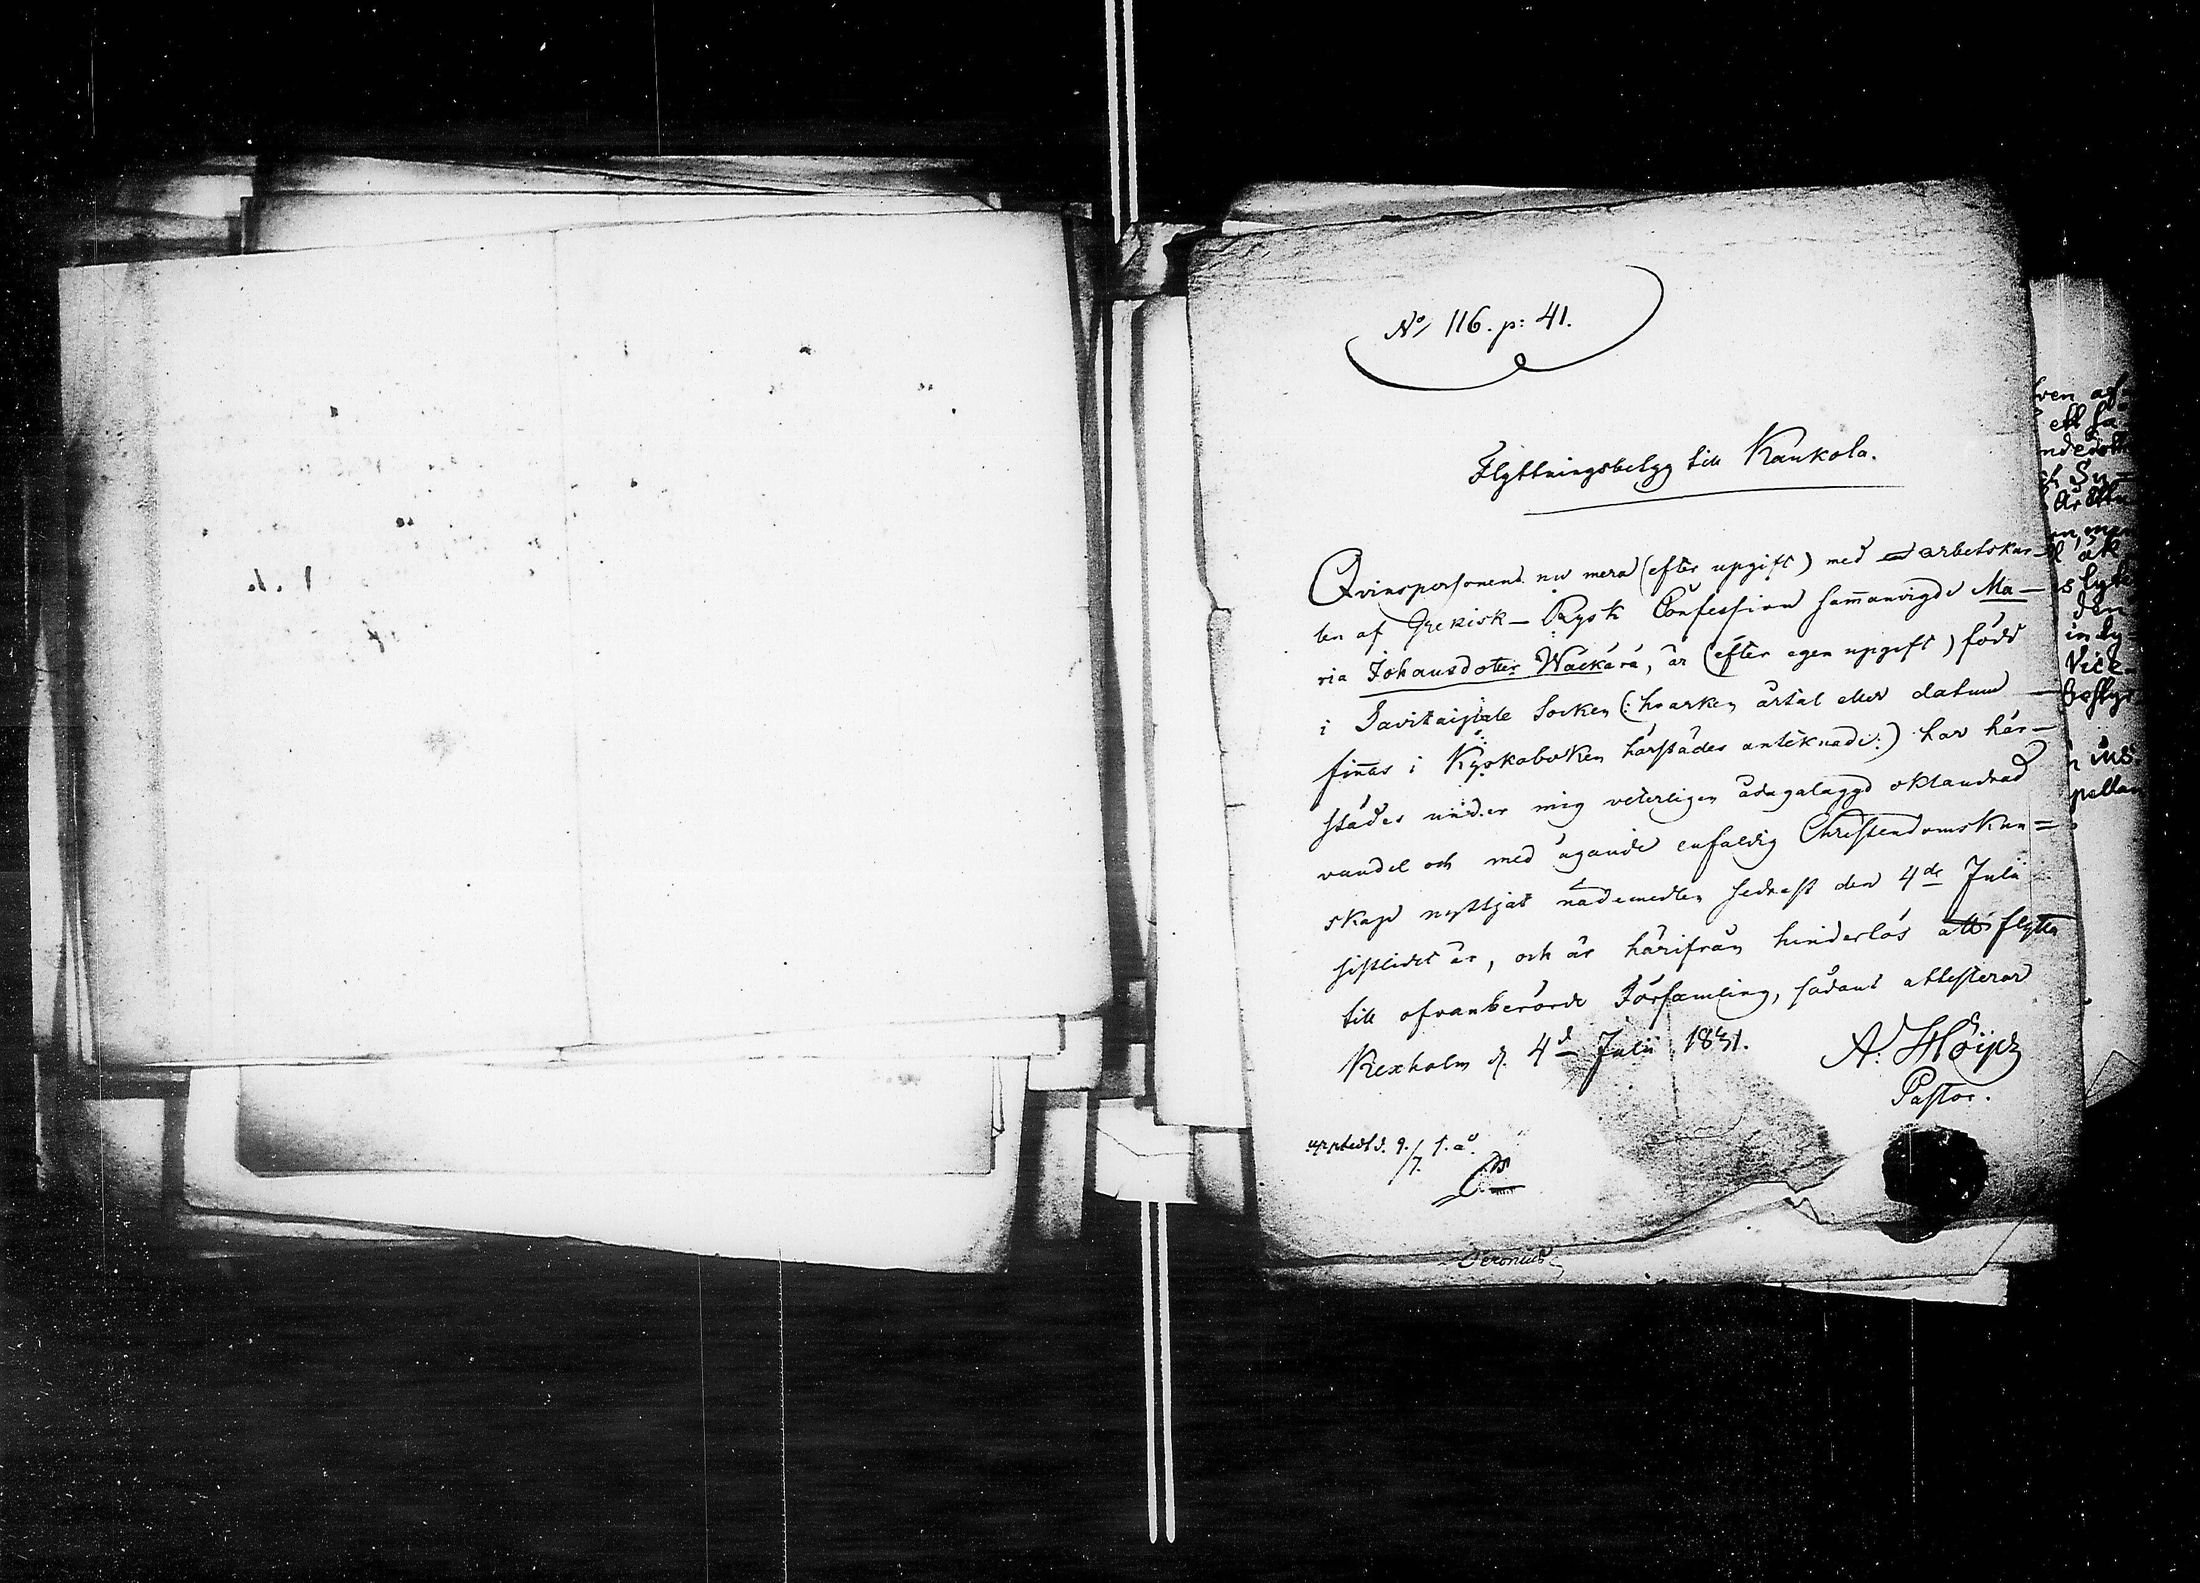 No/ 116. p: 41.
Flyttningsbetyg till Kaukola.
Qvinspersonend nu mera (efter upgift) med arbetskar-
len af Grekisk-Rysk Confession sam̄anvigde Ma-
ria Johansdotter Wäckärä, är (efter egen upgift) född
i Savitaipale Socken (: hvarken årtal eller datum
fin̄as i Kyrkoboken härstädes antecknade :) har här-
städes under mig veterligen ådagalaggd oklandrad
vandel och med ägande enfaldig Christendomskun=
skap nyttjat nådemedlen sednast den 4de Julii
sistledet år, och är härifrån hinderlös att flytta
till ofvanberörde Församling, sådant attesterar
Kexholm d. 4de Julii 1831.
Pastor.
9./7. s. å.
ven af
ett
Vice-
ins
pellan